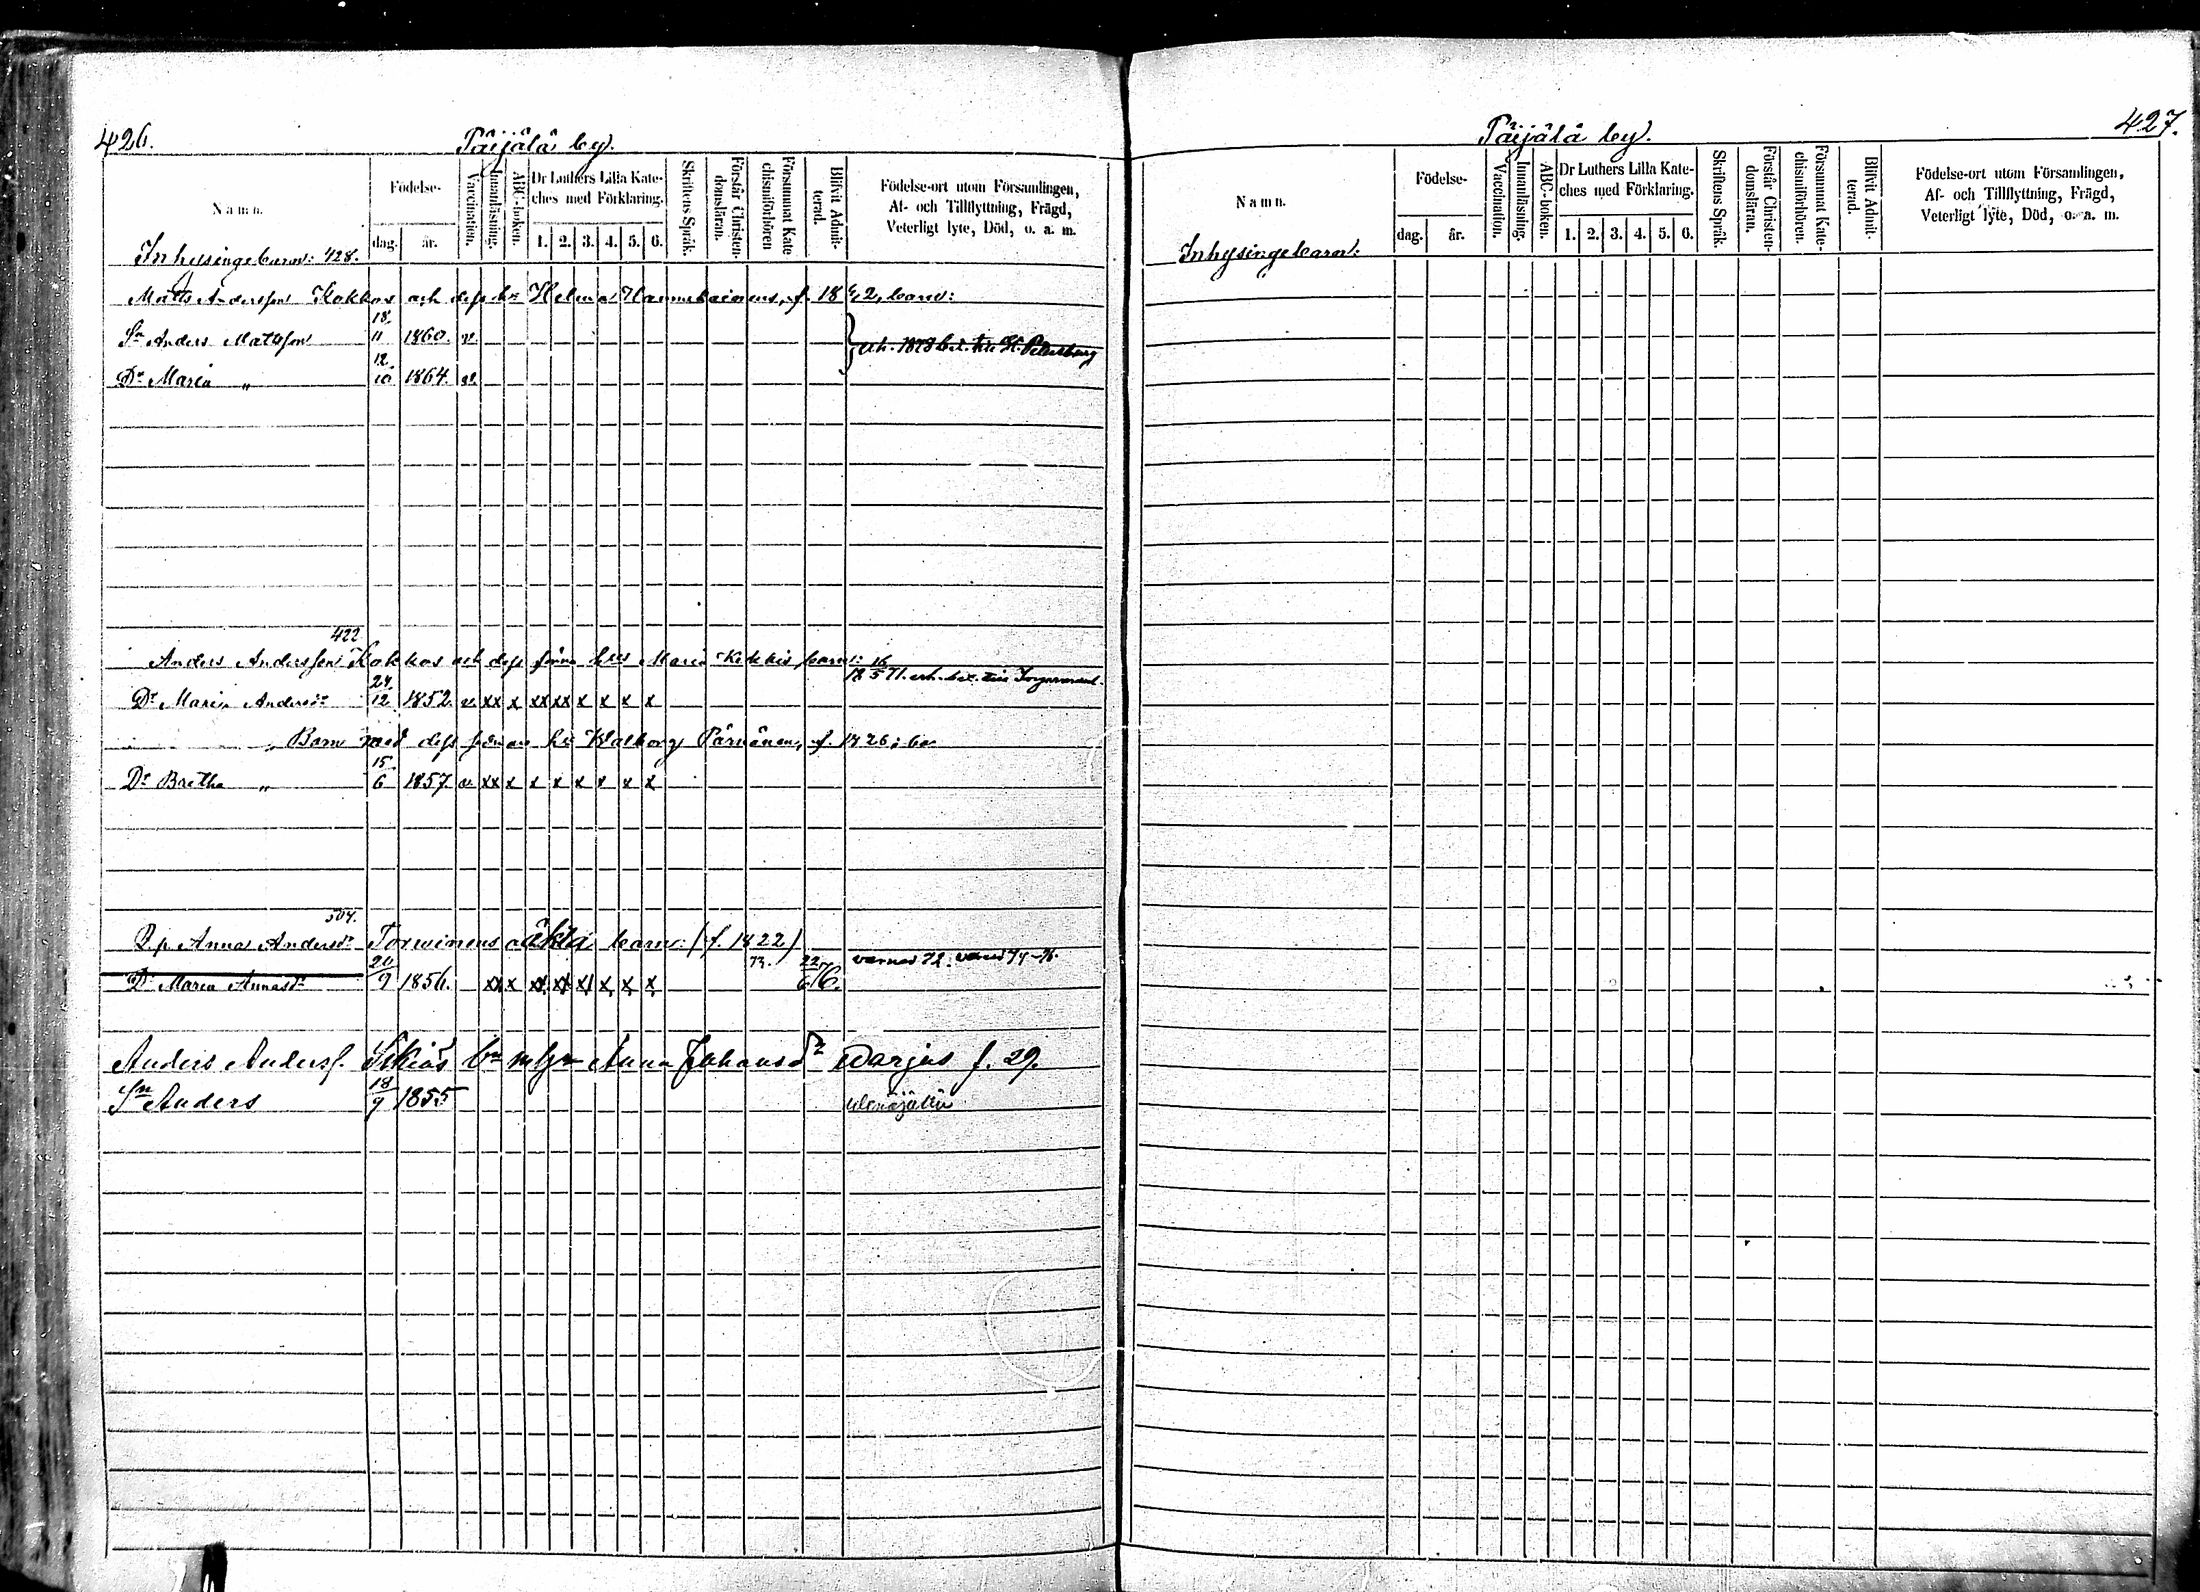 426.
Päijälä by.
Namn.
Födelse-
dag.
år.
Vaccination.
Innanläsning.
ABC-boken.
Dr Luthers Lilla Kate-
ches med Förklaring.
1. 2. 3. 4. 5. 6.
Skriftens Språk.
Förstår Christen-
domsläran.
Försummat Kate
chismiförhören
Blifvit Admit-
terad.
Födelse-ort utom Församlingen,
Af- och Tillflyttning, Frägd,
Veterligt lyte, Död, o. a. m.
Inhysingebarn: 428.
Matts Andersson Kokkos och dess h:u Helena
Sn Anders Mattsson 18/11 1860. v.
erh. 1878 bet. till St. Petersburg
Dr Maria „ 12/10 1864. v.
422
Anders Andersson Kokkos och dess förra h:u Maria Kekkis barn:
18 16/5 71. erh. bet. till
Dr Maria Andersdr 24/12 1852. v. xx x xx xx x x x x
Barn med dess senare h:u Walborg Pärnänen, f. 1826:
Dr Bretha „ 15/6 1857. v. xx x x x x x x x
504.
Anna Andersdr Torvinens oäkta barn: (f. 1822)
Dr Maria Annasdr 20/9 1856. xx x xx xx x x x x 73. 22/6 76.
Anders Anderss. Iskias bn m hu Anna Johansdr Warjus f. 29.
Sn Anders 18/9 1855
427.
Päijälä by.
Namn.
Födelse-
dag.
år.
Vaccination.
Innanläsning.
ABC-boken.
Dr Luthers Lilla Kate-
ches med Förklaring.
1. 2. 3. 4. 5. 6.
Skriftens Språk.
Förstår Christen-
domsläran.
Försummat Kate-
chismiförhören.
Blifvit Admit-
terad.
Födelse-ort utom Församlingen,
Af- och Tillflyttning, Frägd,
Veterligt lyte, Död, o. a. m.
Inhysingebarn: